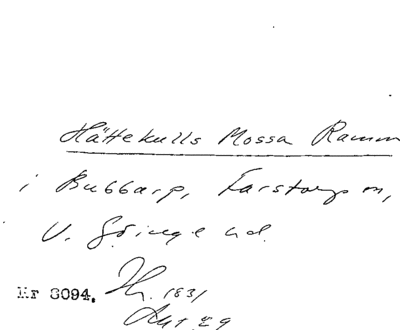 Hättekulls Mossa Ramm
i Bubbarp, Farstorps sn,
V. Göinge hd.
Nr 8094. Hz. 1831
Akt 29